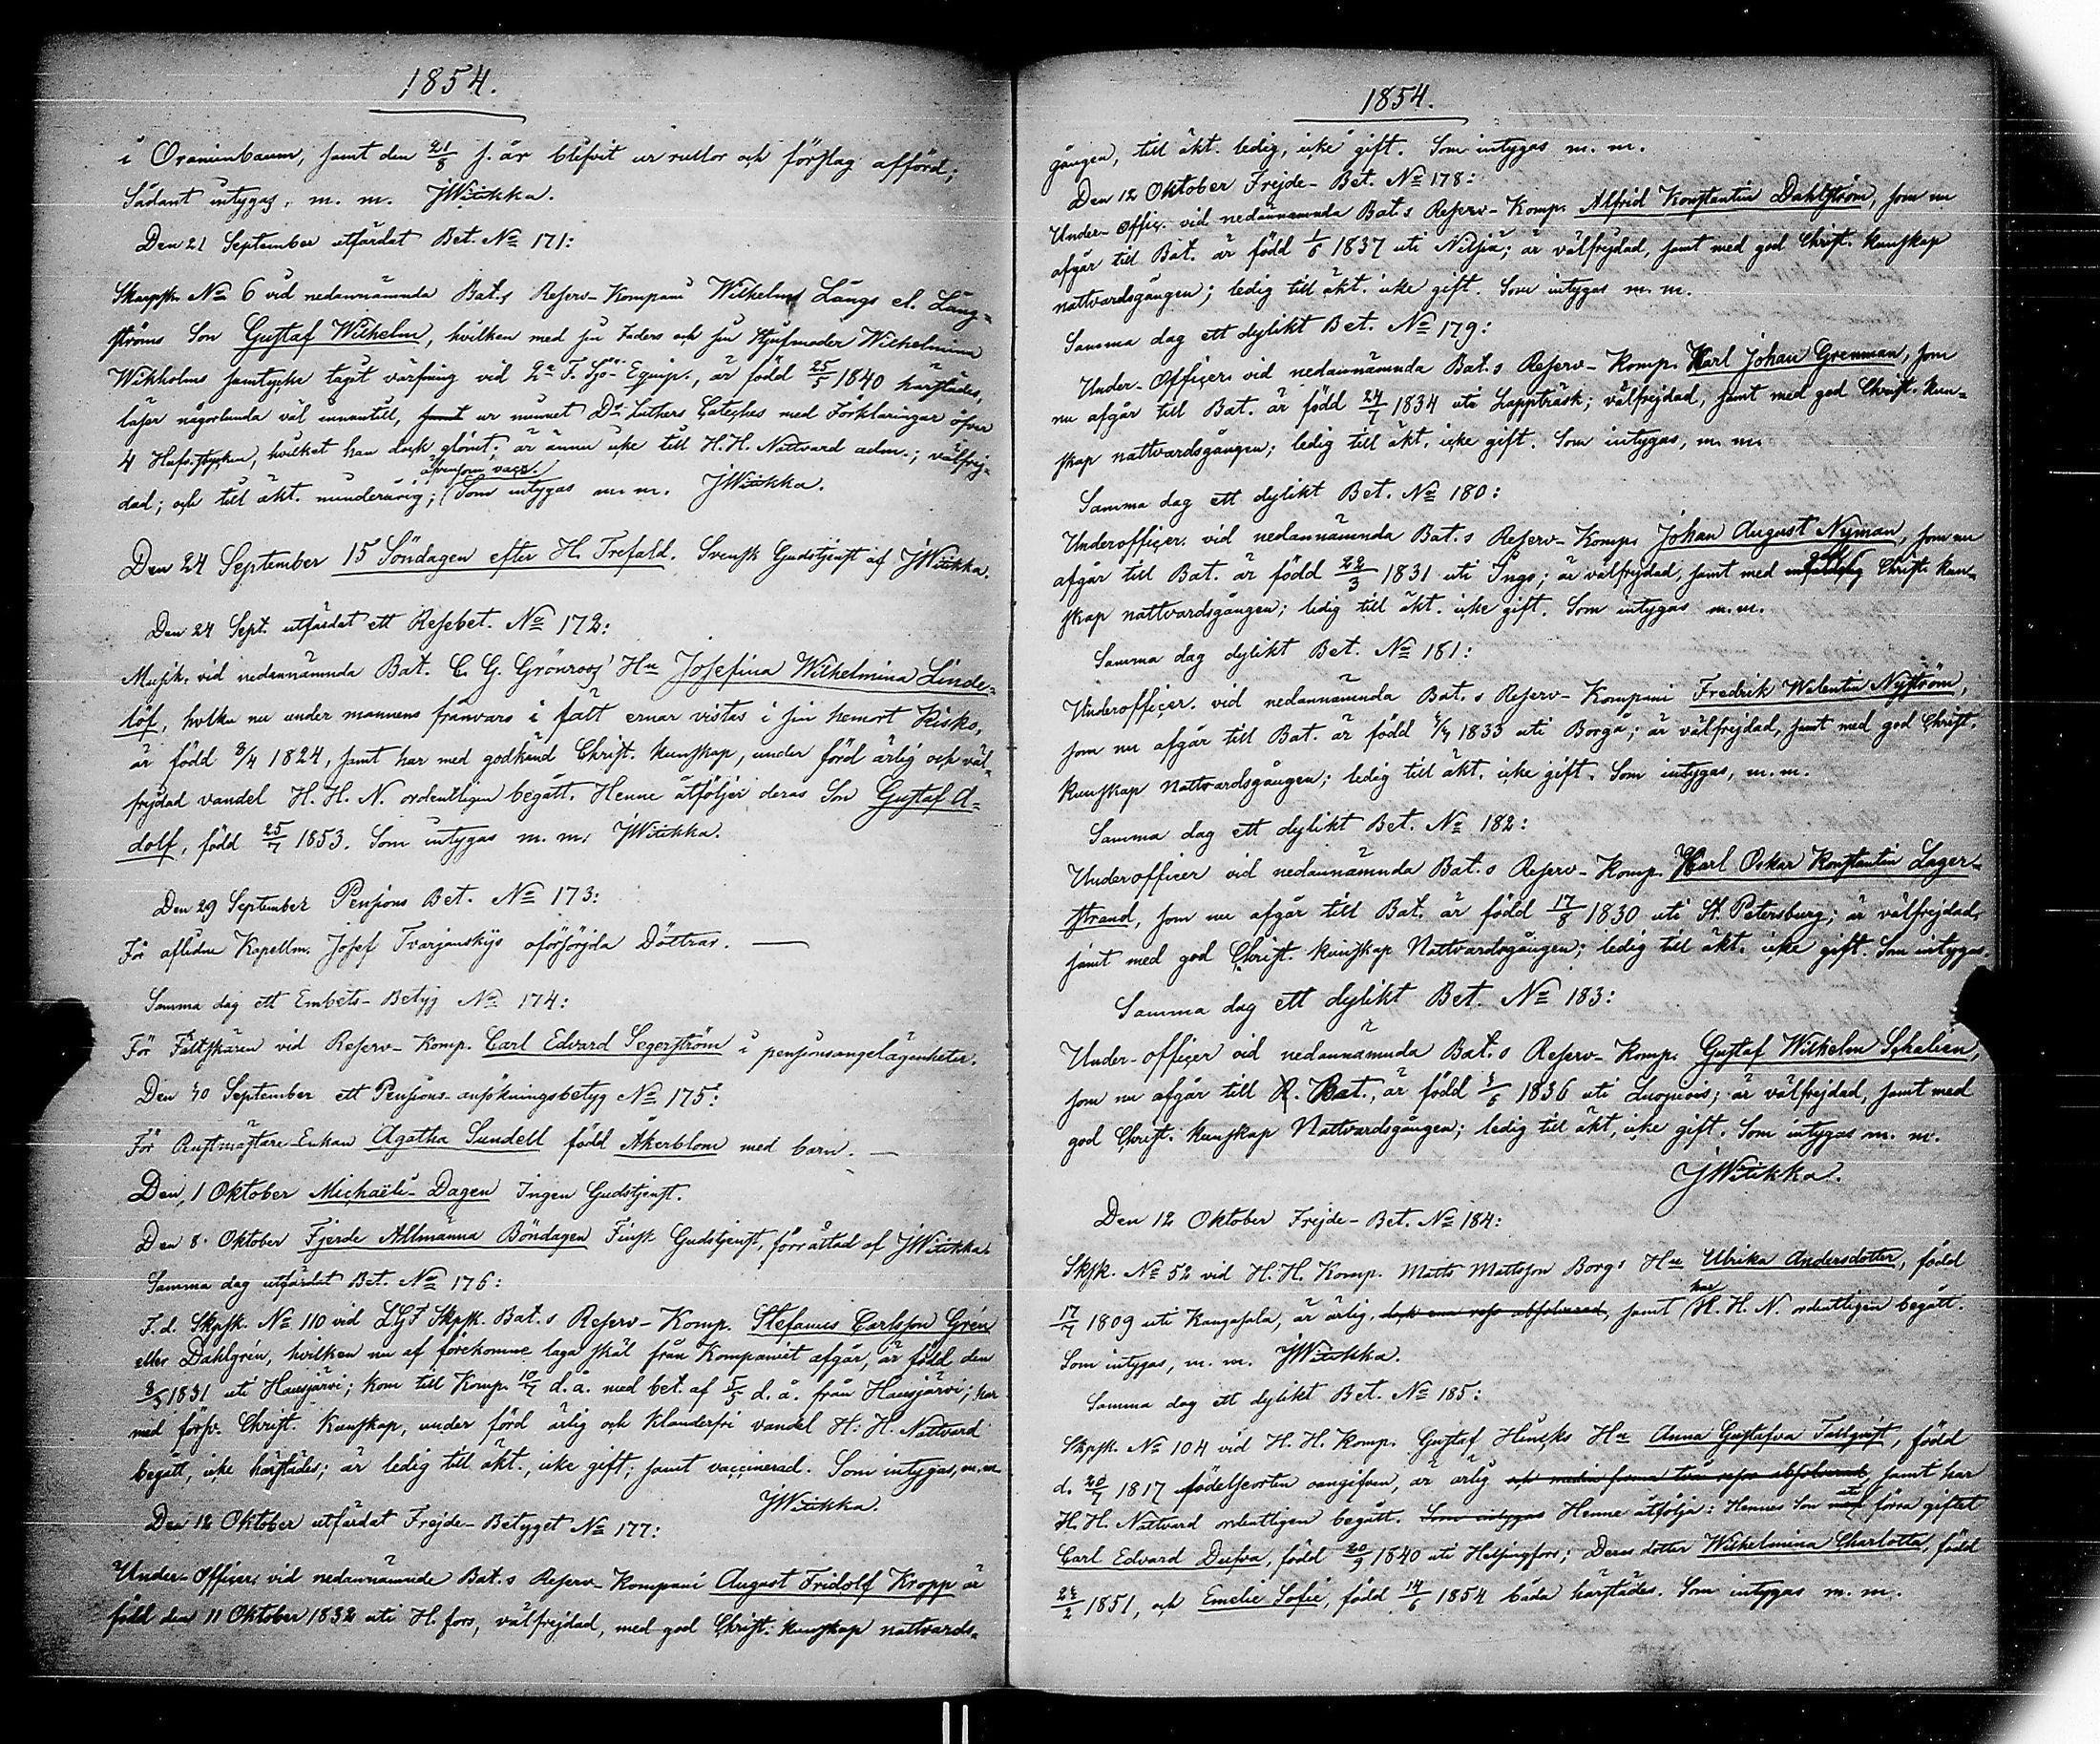 1854.
i Oranienbaum, samt den 21/8 s. år blifvit ur rullor och förslag afförd;
Sådant intygas, m. m. JWiukka.
Den 21 September utfärdat Bet. No 171:
Skarpsk. No 6 vid nedannämnda Bat.s Reserv-Kompani Wilhelm Långs el. Lång-
ströms Son Gustaf Wilhelm, hvilken med sin Faders och sin Styfmoder Wilhelmina
Wikholms samtycke tagit värfning vid 2a F. Sjö-Equip., är född 25/5 1840 härstädes,
läser någorlunda väl innantill, samt ur minnet Dr Luthers Cateches med Förklaringar öfver
4 Hufv.stycken, hvilket han dock glömt; är ännu icke till H. H. Nattvard adm.; välfrej-
dad; och till äkt. munderårig; äfvensom vacc. Som intygas m. m. JWiukka.
Den 24 September 15 Söndagen efter H. Trefald. Svensk Gudstjenst af JWiukka.
Den 24 Sept. utfärdat ett Resebet. No 172:
Musik. vid nedannämnda Bat. C. G. Grönroos' Hu Josefina Wilhelmina Linde-
löf, hvilken nu under mannens frånvaro i fält ernar vistas i sin hemort Kisko,
är född 8/4 1824, samt har med godkänd Christ. kunskap, under förd ärlig och väl-
frejdad vandel H. H. N. ordentligen begått. Henne åtföljer deras Son Gustaf A-
dolf, född 25/7 1853. Som intygas m. m. JWiukka.
Den 29 September Pensions Bet. No 173:
För aflidne Kapellm. Josef Tvarjanskijs oförsörjda Döttrar. —
Samma dag ett Embets-Betyg No 174:
För Fältskären vid Reserv-Komp. Carl Edvard Segerström i pensionsangelägenheter.
Den 30 September ett Pensions-ansökningsbetyg No 175:
För Rustmästare-Enkan Agatha Sundell född Åkerblom med barn. —
Den 1 Oktober Michaëli-Dagen Ingen Gudstjenst.
Den 8 Oktober Fjerde Allmänna Böndagen Finsk Gudstjenst, förrättad af JWiukka.
Samma dag utfärdat Bet. No 176:
F. d. Skpsk. No 110 vid LGF Skpsk. Bat.s Reserv-Komp. Stefanus Carlsson Grén
eller Dahlgrén, hvilken nu af förekomne laga skäl från Kompaniet afgår, är född den
8/3 1831 uti Hausjärvi; kom till Komp. 10/7 d. å. med bet. af 5/5 d. å. från Hausjärvi; har
med försv. Christ. Kunskap, under förd ärlig och klanderfri vandel H. H. Nattvard
begått, icke härstädes; är ledig till äkt., icke gift; samt vaccinerad. Som intygas, m. m.
JWiukka.
Den 12 Oktober utfärdat Frejde-Betyget No 177:
Under-Officer. vid nedannämnde Bat.s Reserv-Kompani August Fridolf Kropp är
född den 11 Oktober 1832 uti H.fors, välfrejdad, med god Christ. kunskap nattvards-
1854.
gången, till äkt. ledig, icke gift. Som intygas m. m.
Den 12 Oktober Frejde-Bet. No 178:
Under-Offic. vid nedannämnda Bat.s Reserv-Komp. Alfrid Konstantin Dahlström, som nu
afgår till Bat. är född 1/6 1837 uti Nilsiä; är välfrejdad, samt med god Christ. kunskap
nattvardsgången; ledig till äkt. icke gift. Som intygas m. m.
Samma dag ett dylikt Bet. No 179:
Under-Officer. vid nedannämnda Bat.s Reserv-Komp. Karl Johan Grenman, som
nu afgår till Bat. är född 24/7 1834 uti Lappträsk; välfrejdad, samt med god Christ. kun-
skap nattvardsgången; ledig till äkt. icke gift. Som intygas, m. m.
Samma dag ett dylikt Bet. No 180:
Underofficer. vid nedannämnda Bat.s Reserv-Komp. Johan August Nyman, som nu
afgår till Bat. är född 22/3 1831 uti Ingo; är välfrejdad, samt med god Christ. kun-
skap nattvardsgången; ledig till äkt. icke gift. Som intygas m. m.
Samma dag dylikt Bet. No 181:
Underofficer. vid nedannämnda Bat.s Reserv-Kompani Fredrik Walentin Nyström,
som nu afgår till Bat. är född 1833 uti Borgå; är välfrejdad, samt med god Christ.
kunskap Nattvardsgången; ledig till äkt. icke gift. Som intygas, m. m.
Samma dag ett dylikt Bet. No 182:
Underofficer vid nedannämnda Bat.s Reserv-Komp. Karl Oskar Konstantin Lager-
strand, som nu afgår till Bat. är född 17/8 1830 uti St. Petersburg; är välfrejdad,
samt med god Christ. kunskap Nattvardsgången; ledig till äkt. icke gift. Som intygas.
Samma dag ett dylikt Bet. No 183:
Under-officer vid nedannämnda Bat.s Reserv-Komp. Gustaf Wilhelm Schalien,
som nu afgår till R. Bat., är född 1/6 1836 uti Luopiois; är välfrejdad, samt med
god Christ. kunskap Nattvardsgången; ledig till äkt, icke gift. Som intygas m. m.
JWiukka.
Den 12 Oktober Frejde-Bet. No 184:
Skpsk. No 52 vid H. H. Komp. Matts Mattsson Borgs Hu Ulrika Andersdotter, född
17/7 1809 uti Kangasala, är ärlig, dock en resa absolverad, samt har H. H. N. ordentligen begått.
Som intygas, m. m. JWiukka.
Samma dag ett dylikt Bet. No 185:
Skpsk. No 104 vid H. H. Komp. Gustaf Hincks Hu Anna Gustafva Fallqvist, född
d. 20/7 1817 födelseorten oangifven, är ärlig absolverad, samt har
H. H. Nattvard ordentligen begått. Som intygas Henne åtfölja: Hennes Son uti förra giftet
Carl Edvard Dufva, född 20/9 1840 uti Helsingfors; Deras dotter Wilhelmina Charlotta, född
1851, och Emelie Sofie, född 14/6 1854 båda härstädes. Som intygas m. m.